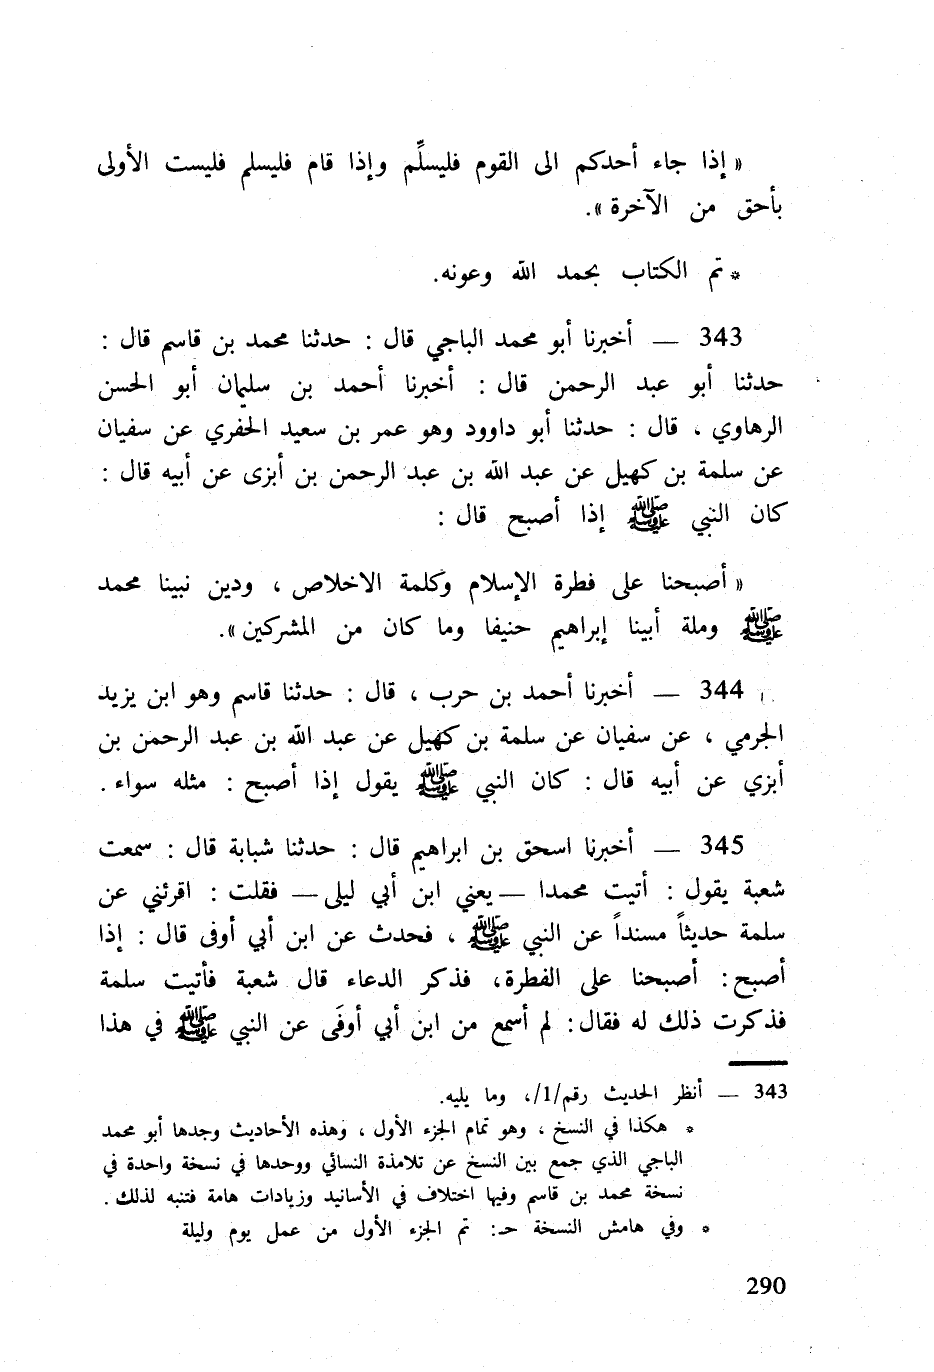 « إذا جاء أحدكم الى القوم فليسلِّم وإذا قام فليسلم فليست الأولى
بأحق من الآخرة ».
* تم الكتاب بحمد الله وعونه.
343 — أخبرنا أبو محمد الباجي قال : حدثنا محمد بن قاسم قال :
حدثنا أبو عبد الرحمن قال : أخبرنا أحمد بن سليمان أبو الحسن
الرهاوي ، قال : حدثنا أبو داوود وهو عمر بن سعيد الحفري عن سفيان
عن سلمة بن كهيل عن عبد الله بن عبد الرحمن بن أبزى عن أبيه قال :
كان النبي ﷺ إذا أصبح قال :
« أصبحنا على فطرة الإسلام وكلمة الاخلاص ، ودين نبينا محمد
ﷺ وملة أبينا إبراهيم حنيفا وما كان من المشركين ».
344 — أخبرنا أحمد بن حرب ، قال : حدثنا قاسم وهو ابن يزيد
الجرمي ، عن سفيان عن سلمة بن كهيل عن عبد الله بن عبد الرحمن بن
أبزي عن أبيه قال : كان النبي ﷺ يقول إذا أصبح : مثله سواء .
345 — أخبرنا اسحق بن ابراهيم قال : حدثنا شبابة قال : سمعت
شعبة يقول : أتيت محمدا — يعني ابن أبي ليلى — فقلت : اقرئني عن
سلمة حديثاً مسنداً عن النبي ﷺ ، فحدث عن ابن أبي أوفى قال : إذا
أصبح : أصبحنا على الفطرة، فذكر الدعاء قال شعبة فأتيت سلمة
فذكرت ذلك له فقال : لم أسمع من ابن أبي أوفَى عن النبي ﷺ في هذا
343 — أنظر الحديث رقم/1/، وما يليه.
* هكذا في النسخ ، وهو تمام الجزء الأول ، وهذه الأحاديث وجدها أبو محمد
الباجي الذي جمع بين النسخ عن تلامذة النسائي ووحدها في نسخة واحدة في
نسخة محمد بن قاسم وفيها اختلاف في الأسانيد وزيادات هامة فتنبه لذلك .
* وفي هامش النسخة حـ: تم الجزء الأول من عمل يوم وليلة
290